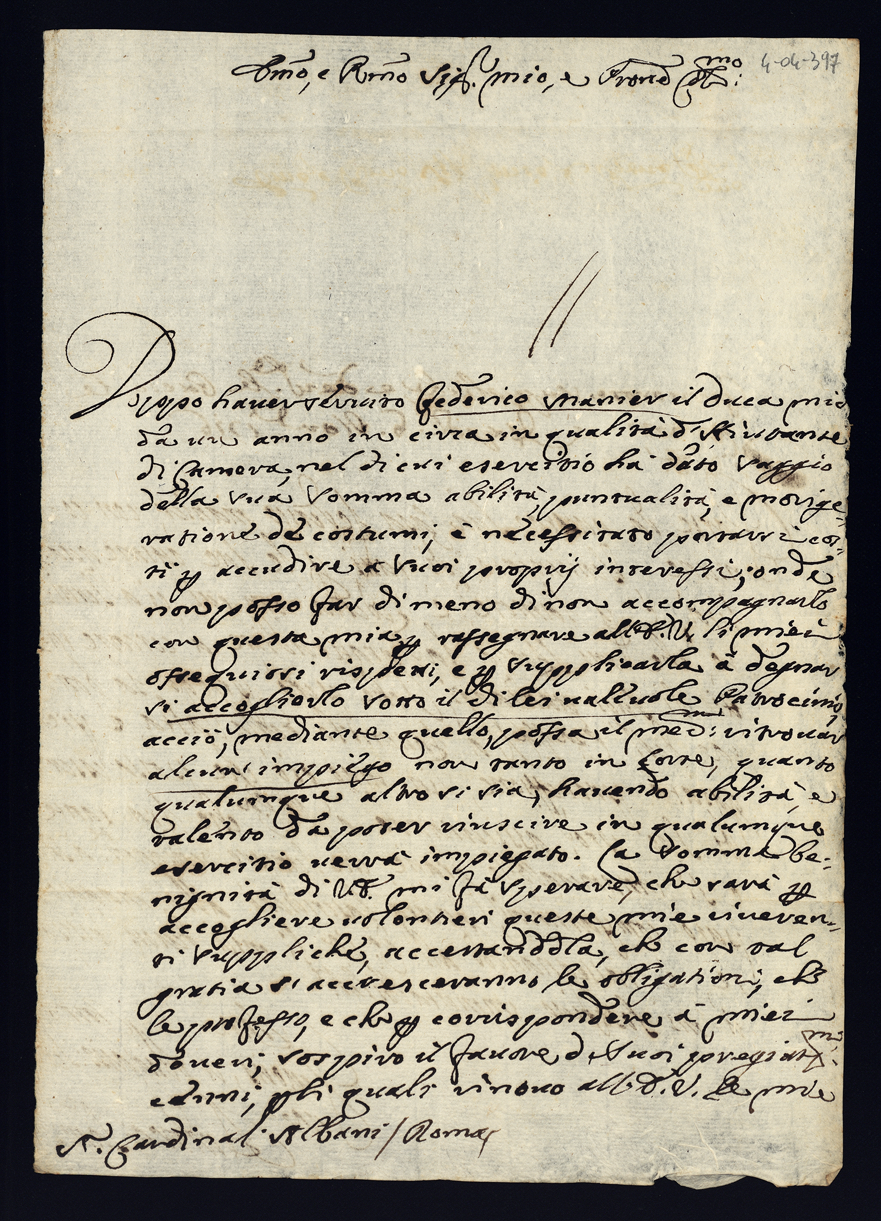 Emo, e Rmo Sigr. mio, e Prone Colmo:
4-04-397
Doppo haver servito Federico Manier il Duca mio
da un anno in circa in qualità d'Aiutante
di Camera, nel di cui esercitio hà dato saggio
della sua somma abilità, puntualità, e morige-
ratione de costumi, è necessitato portarsi cos-
tì p accudire a suoi proprij interessi; onde
non posso far di meno di non accompagnarlo
con questa mia p rassegnare all'E.V. li miei
ossequiosi rispetti, e p supplicarla à degnar
si accoglierlo sotto il di lei Patrocinio,
acciò, mediante quello, possa il medmo: ritrovar
alcun' impiego non tanto in Corte, quanto
qualumque altro si sia, havendo abilità, e
talento da poter riuscire in qualumque
esercitio verrà impiegato. La somma be-
nignità di V.E. mi fà sperare, che sarà p
accogliere volontieri queste mie riveren-
ti suppliche, accertandola, che con tal
gratia s'accresceranno le obligationi, che
le professo, e che p corrispondere à miei
doveri, sospiro il favore d suoi pregiatmi:
cenni, p li quali rinovo all'E.V. le mie
Sr. Cardinal Albani / Roma